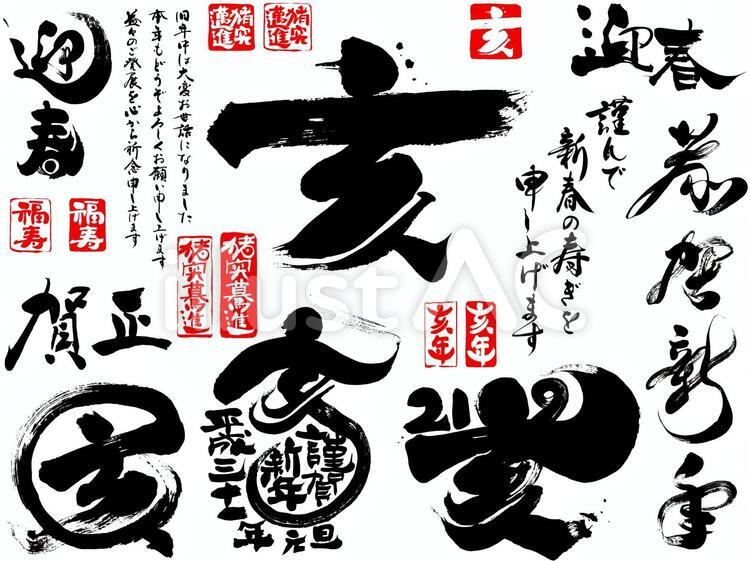 迎春
旧年中は大変お世話になりました
本年もどうぞよろしくお願い申し上げます
益々のご発展を心から祈念申し上げます
亥
亥
迎春
謹んで
新春の寿ぎを
申し上げます
恭賀新年
福寿
福寿
猪突驀進
猪突驀進
亥年
亥年
賀正
亥
亥
謹賀
新年
平成三十一年元旦
2019
亥
illustAC